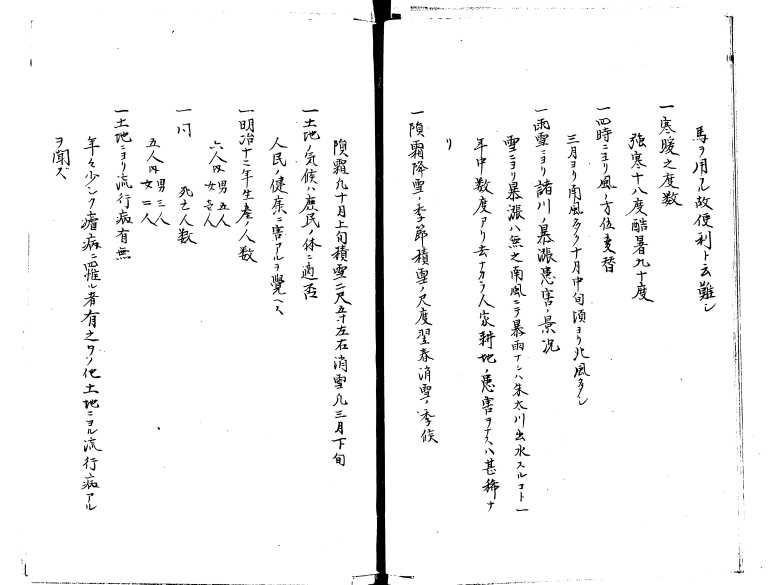 馬ヲ用ル故便利ト云難シ
一寒暖之度数
強寒十八度酷暑九十度
一四時ニヨリ風ノ方位変替
三月ヨリ南風多ク十月中旬頃ヨリ北風多シ
一雨雪ニヨリ諸川ノ暴漲患害ノ景况
雪ニヨリ暴漲ハ無之南風ニテ暴雨ナレハ朱太川出水スルコト一
年中数度アリ去ナカラ人家耕地ノ患害ヲナスハ甚稀ナ
リ
一隕霜降雪ノ季節積雪ノ尺度翌春消雪ノ季候
隕霜九十月上旬積雪二尺五寸左右消雪凡三月下旬
一土地ノ気候ハ庶民ノ体ニ適否
人民ノ健康ニ害アルヲ覺ヘス
一明治十二年生産ノ人数
六人内 男五人 女壱人
一同 死亡人数
五人内 男三人 女二人
一土地ニヨリ流行病有無
年々少シク瘡病ニ罹ル者有之ヲソノ他土地ニヨル流行病アル
ヲ聞ズ